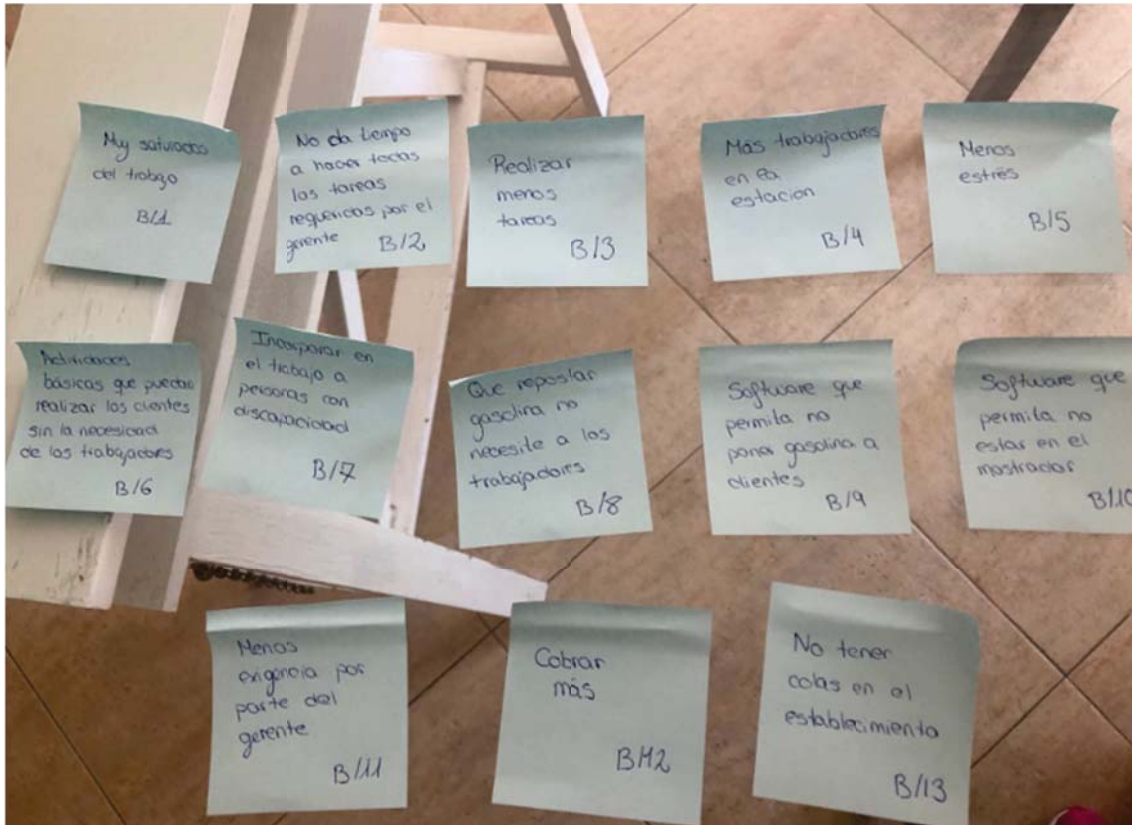 Muy saturados
del trabajo
B/1
No da tiempo
a hacer todas
las tareas
requeridas por el
gerente B/2
Realizar
menos
tareas
B/3
Más trabajadores
en la
estacion
B/4
Menos
estrés
B/5
Actividades
básicas que puedan
realizar los clientes
sin la necesidad
de los trabajadores
B/6
Incorporar en
el trabajo a
personas con
discapacidad
B/7
Que repostar
gasolina no
necesite a los
trabajadores
B/8
Software que
permita no
poner gasolina a
clientes
B/9
Software que
permita no
estar en el
mostrador
B/10
Menos
exigencia por
parte del
gerente
B/11
Cobrar
más
B/12
No tener
colas en el
establecimiento
B/13